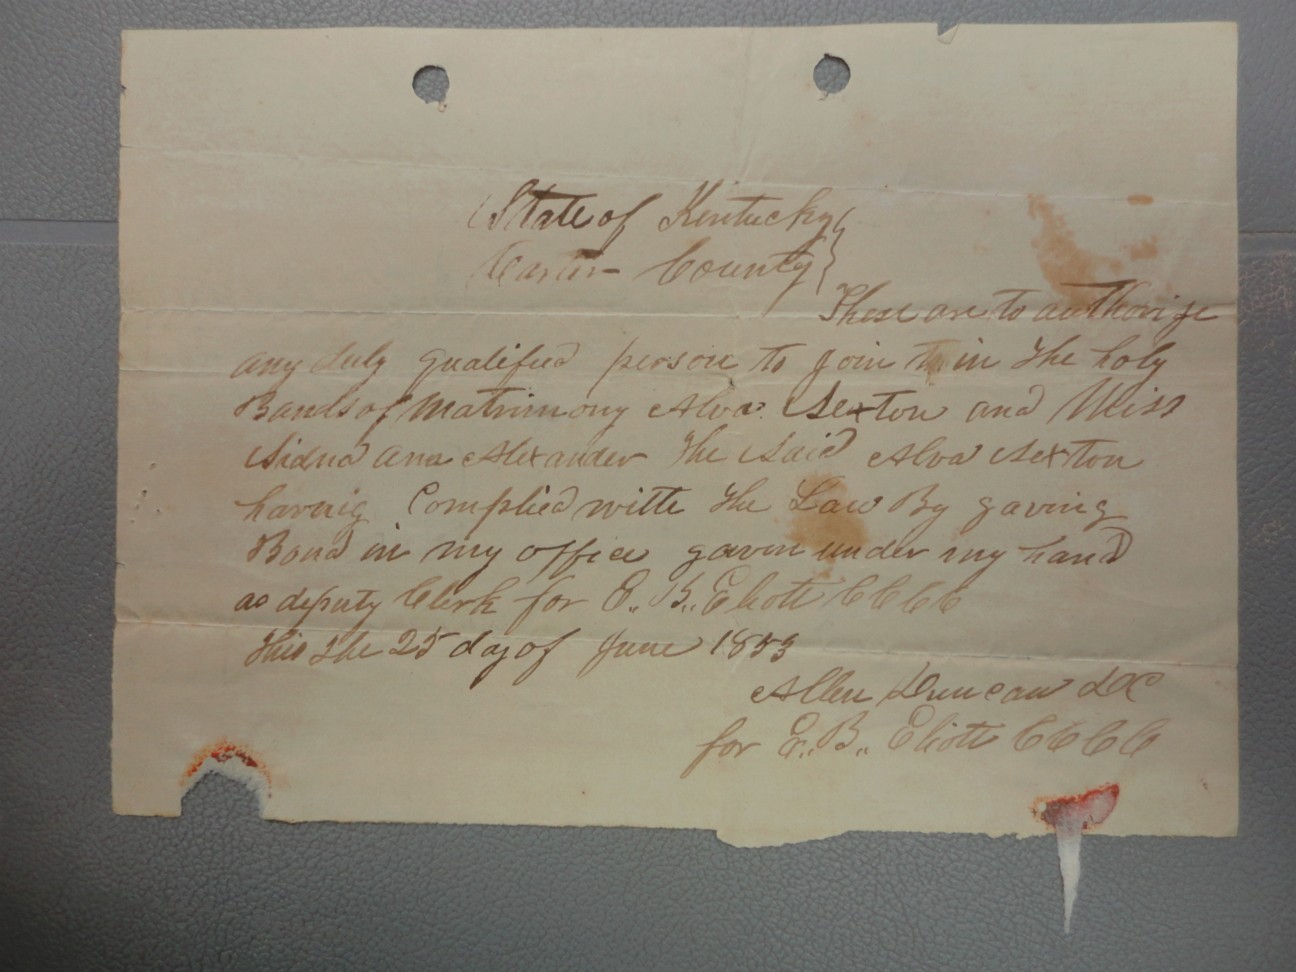 State of Kentucky
Carter County
These are to authorize
any duly qualified person to join in the holy
Bands of Matrimony Alva Sexton and Miss
Sidna ana Alexander The Said Alva Sexton
having Complied with the Law By gaving
Bond in my office gaven under my hand
as deputy Clerk for E. B. Eliott CCCC
this the 25 day of June 1853
Allen Duncan DC
for E. B. Eliott CCCC